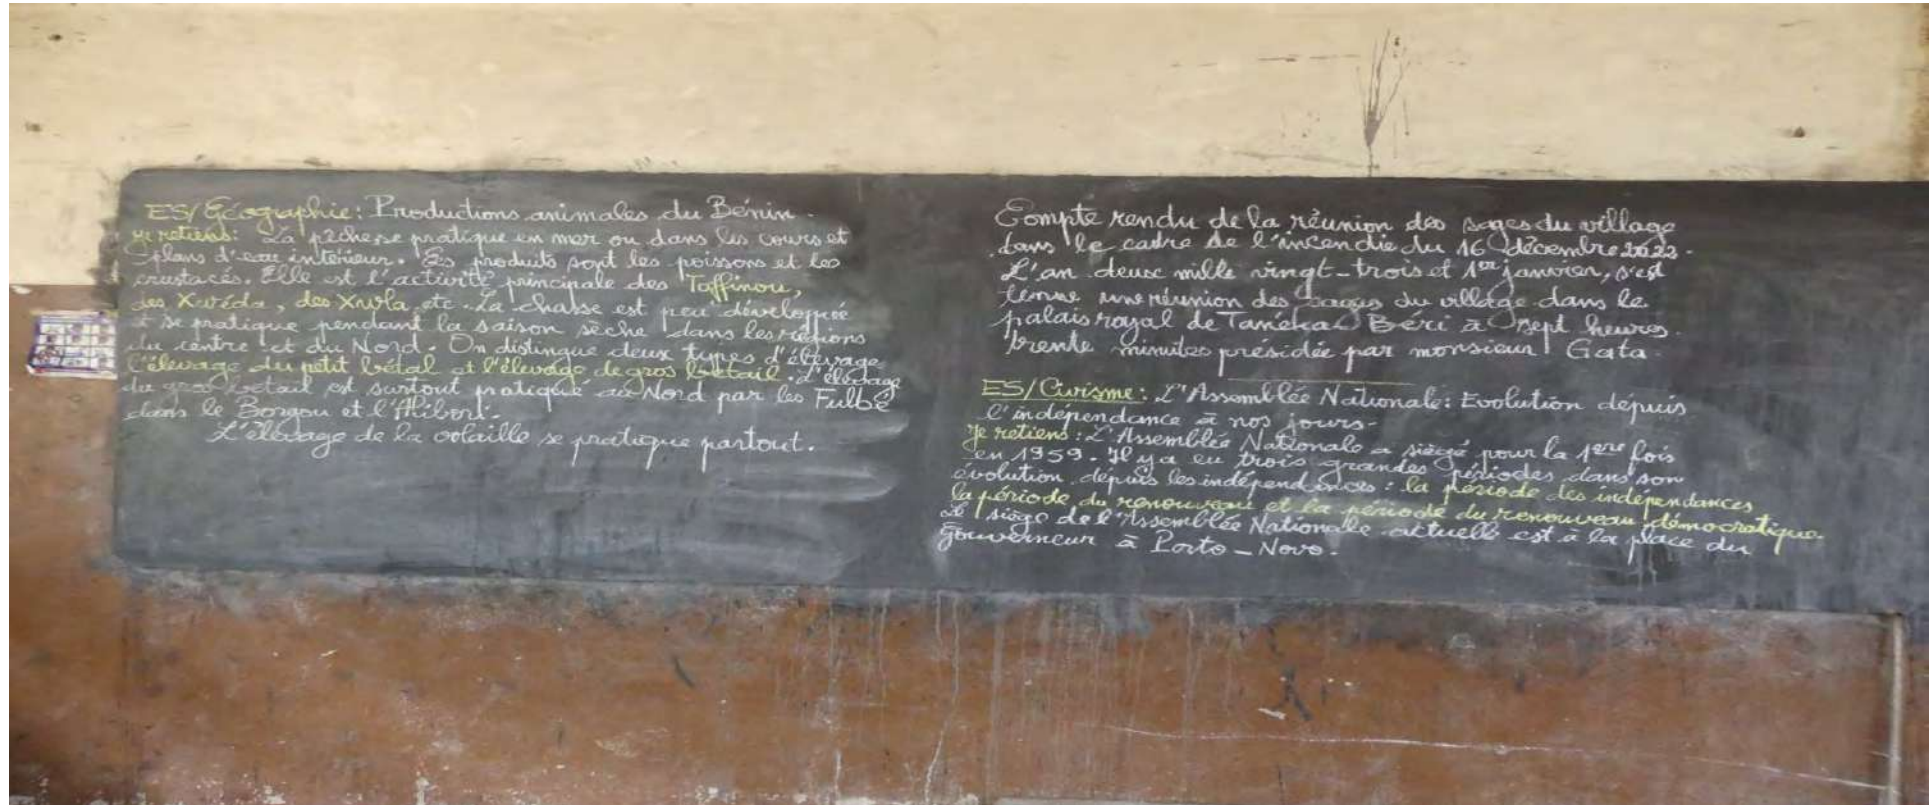 ES/Géographie: Productions animales du Bénin.
Je retiens: La pêche se pratique en mer ou dans les cours et
plans d'eau intérieur. Les produits sont les poissons et les
crustacés. Elle est l'activité principale des Toffinou,
des Xwéda, des Xwla, etc. La chasse est peu développée
et se pratique pendant la saison sèche dans les régions
du centre et du Nord. On distingue deux types d'élevage
l'élevage du petit bétail et l'élevage de gros bétail. L'élevage
du gros bétail est surtout pratiqué au Nord par les Fulbé
dans le Borgou et l'Alibori.
L'élevage de la volaille se pratique partout.
Compte rendu de la réunion des sages du village
dans le cadre de l'incendie du 16 décembre 2022.
L'an deux mille vingt-trois et 1er janvier, s'est
tenue une réunion des sages du village dans le
palais royal de Tanéka Béri à sept heures
trente minutes présidée par monsieur Gata.
ES/Civisme: L'Assemblée Nationale: Evolution dépuis
l'indépendance à nos jours.
Je retiens: L'Assemblée Nationale a siégé pour la 1ere fois
en 1959. Il y a eu trois grandes périodes dans son
évolution dépuis les indépendances: la période des indépendances
la période du renouveau et la période du renouveau démocratique.
Le siège de l'Assemblée Nationale actuelle est à la place du
gouverneur à Porto-Novo.